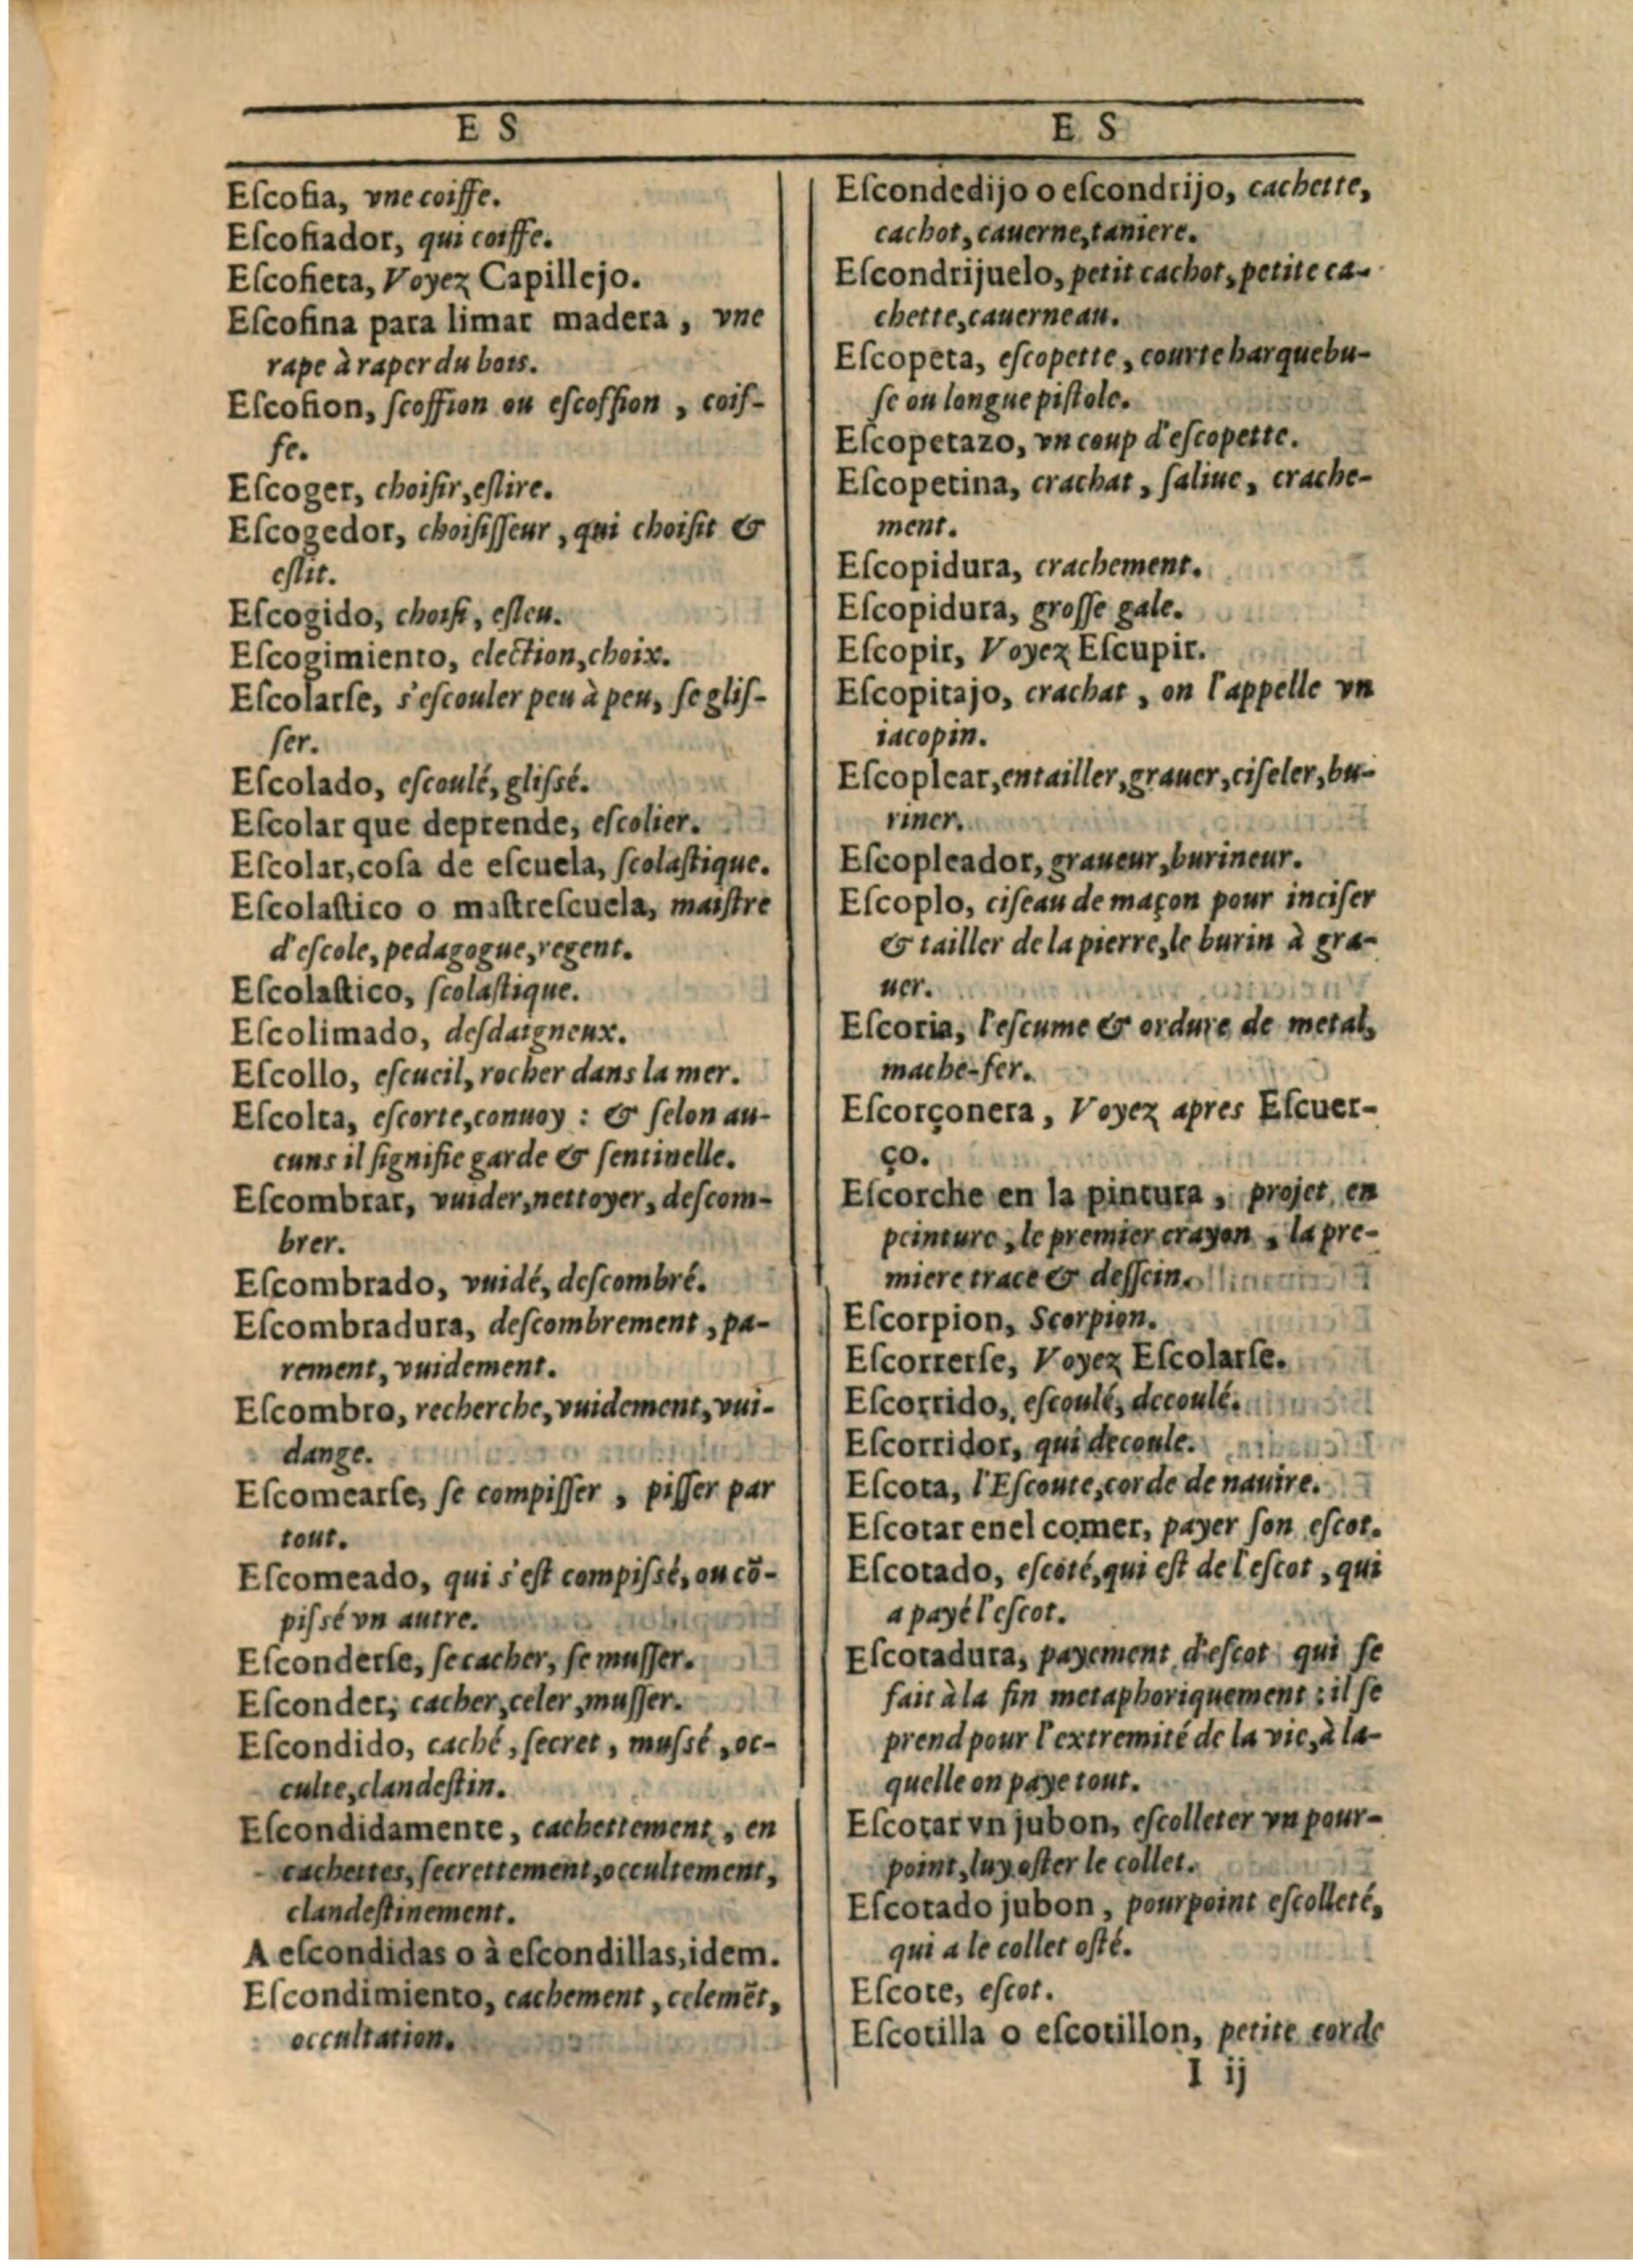 E S
Eſcofia, vne coiffe.
Eſcofiador, qui coiffe.
Eſcofieta, Voyez Capillejo.
Eſcofina para limar madera, vne
rape à raper du bois.
Eſcofion, ſcoffion ou eſcoffion, coiſ-
fe.
Eſcoger, choiſir, eſlire.
Eſcogedor, choiſiſſeur, qui choiſit &
eſlit.
Eſcogido, choiſi, eſleu.
Eſcogimiento, election, choix.
Eſcolarſe, s'eſcouler peu à peu, ſe gliſ-
ſer.
Eſcolado, eſcoulé, gliſsé.
Eſcolar que deprende, eſcolier.
Eſcolar, coſa de eſcuela, ſcolaſtique.
Eſcolaſtico o maſtreſcuela, maiſtre
d'eſcole, pedagogue, regent.
Eſcolaſtico, ſcolaſtique.
Eſcolimado, deſdaigneux.
Eſcollo, eſcueil, rocher dans la mer.
Eſcolta, eſcorte, conuoy : & ſelon au-
cuns il ſignifie garde & ſentinelle.
Eſcombrar, vuider, nettoyer, deſcom-
brer.
Eſcombrado, vuidé, deſcombré.
Eſcombradura, deſcombrement, pa-
rement, vuidement.
Eſcombro, recherche, vuidement, vui-
dange.
Eſcomearſe, ſe compiſſer, piſſer par
tout.
Eſcomeado, qui s'eſt compiſsé, ou cō-
piſsé vn autre.
Eſconderſe, ſe cacher, ſe muſſer.
Eſconder, cacher, celer, muſſer.
Eſcondido, caché, ſecret, muſsé, oc-
culte, clandeſtin.
Eſcondidamente, cachettement, en
cachettes, ſecrettement, occultement,
clandeſtinement.
A eſcondidas o à eſcondillas, idem.
Eſcondimiento, cachement, celemẽt,
occultation.
E S
Eſcondedijo o eſcondrijo, cachette,
cachot, cauerne, taniere.
Eſcondrijuelo, petit cachot, petite ca-
chette, cauerneau.
Eſcopeta, eſcopette, courte harquebu-
ſe ou longue piſtole.
Eſcopetazo, vn coup d'eſcopette.
Eſcopetina, crachat, ſaliue, crache-
ment.
Eſcopidura, crachement.
Eſcopidura, groſſe gale.
Eſcopir, Voyez Eſcupir.
Eſcopitajo, crachat, on l'appelle vn
iacopin.
Eſcoplear, entailler, grauer, ciſeler, bu-
riner.
Eſcopleador, graueur, burineur.
Eſcoplo, ciſeau de maçon pour inciſer
& tailler de la pierre, le burin à gra-
uer.
Eſcoria, l'eſcume & ordure de metal,
mache-fer.
Eſcorçonera, Voyez apres Eſcuer-
ço.
Eſcorche en la pintura, projet en
peinture, le premier crayon, la pre-
miere trace & deſſein.
Eſcorpion, Scorpion.
Eſcorrerſe, Voyez Eſcolarſe.
Eſcorrido, eſcoulé, decoulé.
Eſcorridor, qui decoule.
Eſcota, l'Eſcoute, corde de nauire.
Eſcotar enel comer, payer ſon eſcot.
Eſcotado, eſcoté, qui eſt de l'eſcot, qui
a payé l'eſcot.
Eſcotadura, payement d'eſcot qui ſe
fait à la fin metaphoriquement : il ſe
prend pour l'extremité de la vie, à la-
quelle on paye tout.
Eſcotar vn jubon, eſcolleter vn pour-
point, luy oſter le collet.
Eſcotado jubon, pourpoint eſcolleté,
qui a le collet oſté.
Eſcote, eſcot.
Eſcotilla o eſcotillon, petite corde
I ij